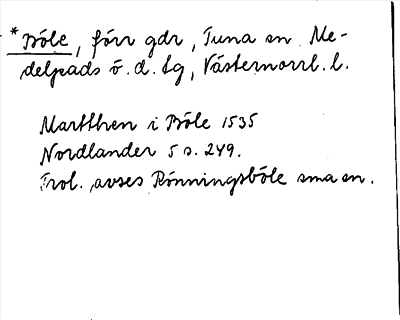 *Böle, förr gdr, Tuna sn Me-
delpads ö. d. tg, Västernorrl. l.
Martthen i Böle 1535
Nordlander 5 s. 249.
Trol. avses Rönningsböle sma sn.